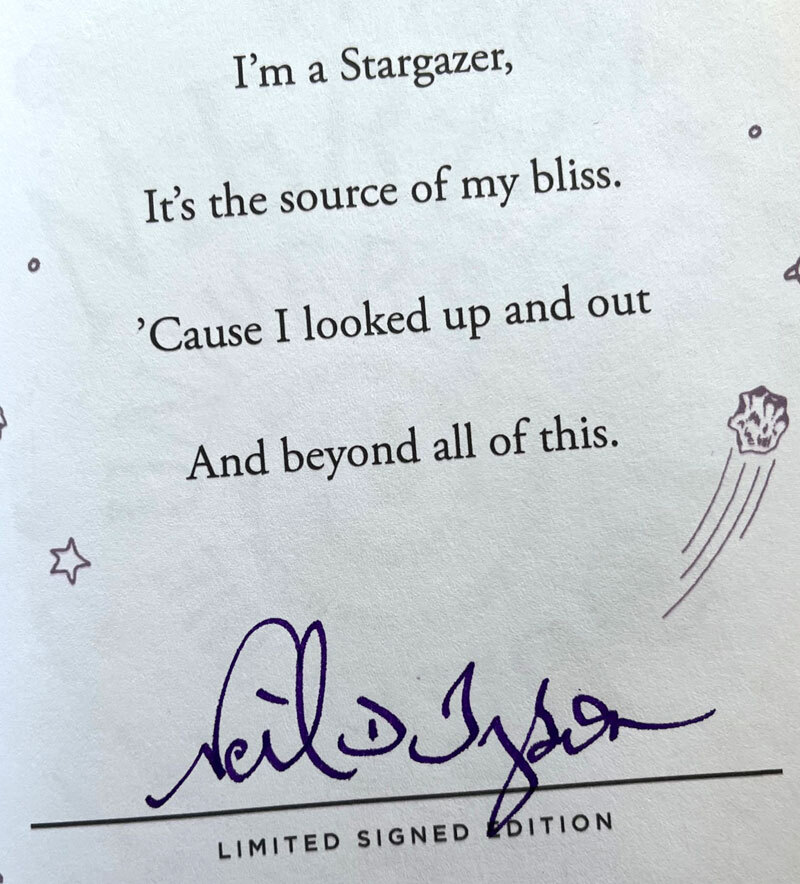 I’m a Stargazer,
It’s the source of my bliss.
’Cause I looked up and out
And beyond all of this.
Neil D Tyson
LIMITED SIGNED EDITION